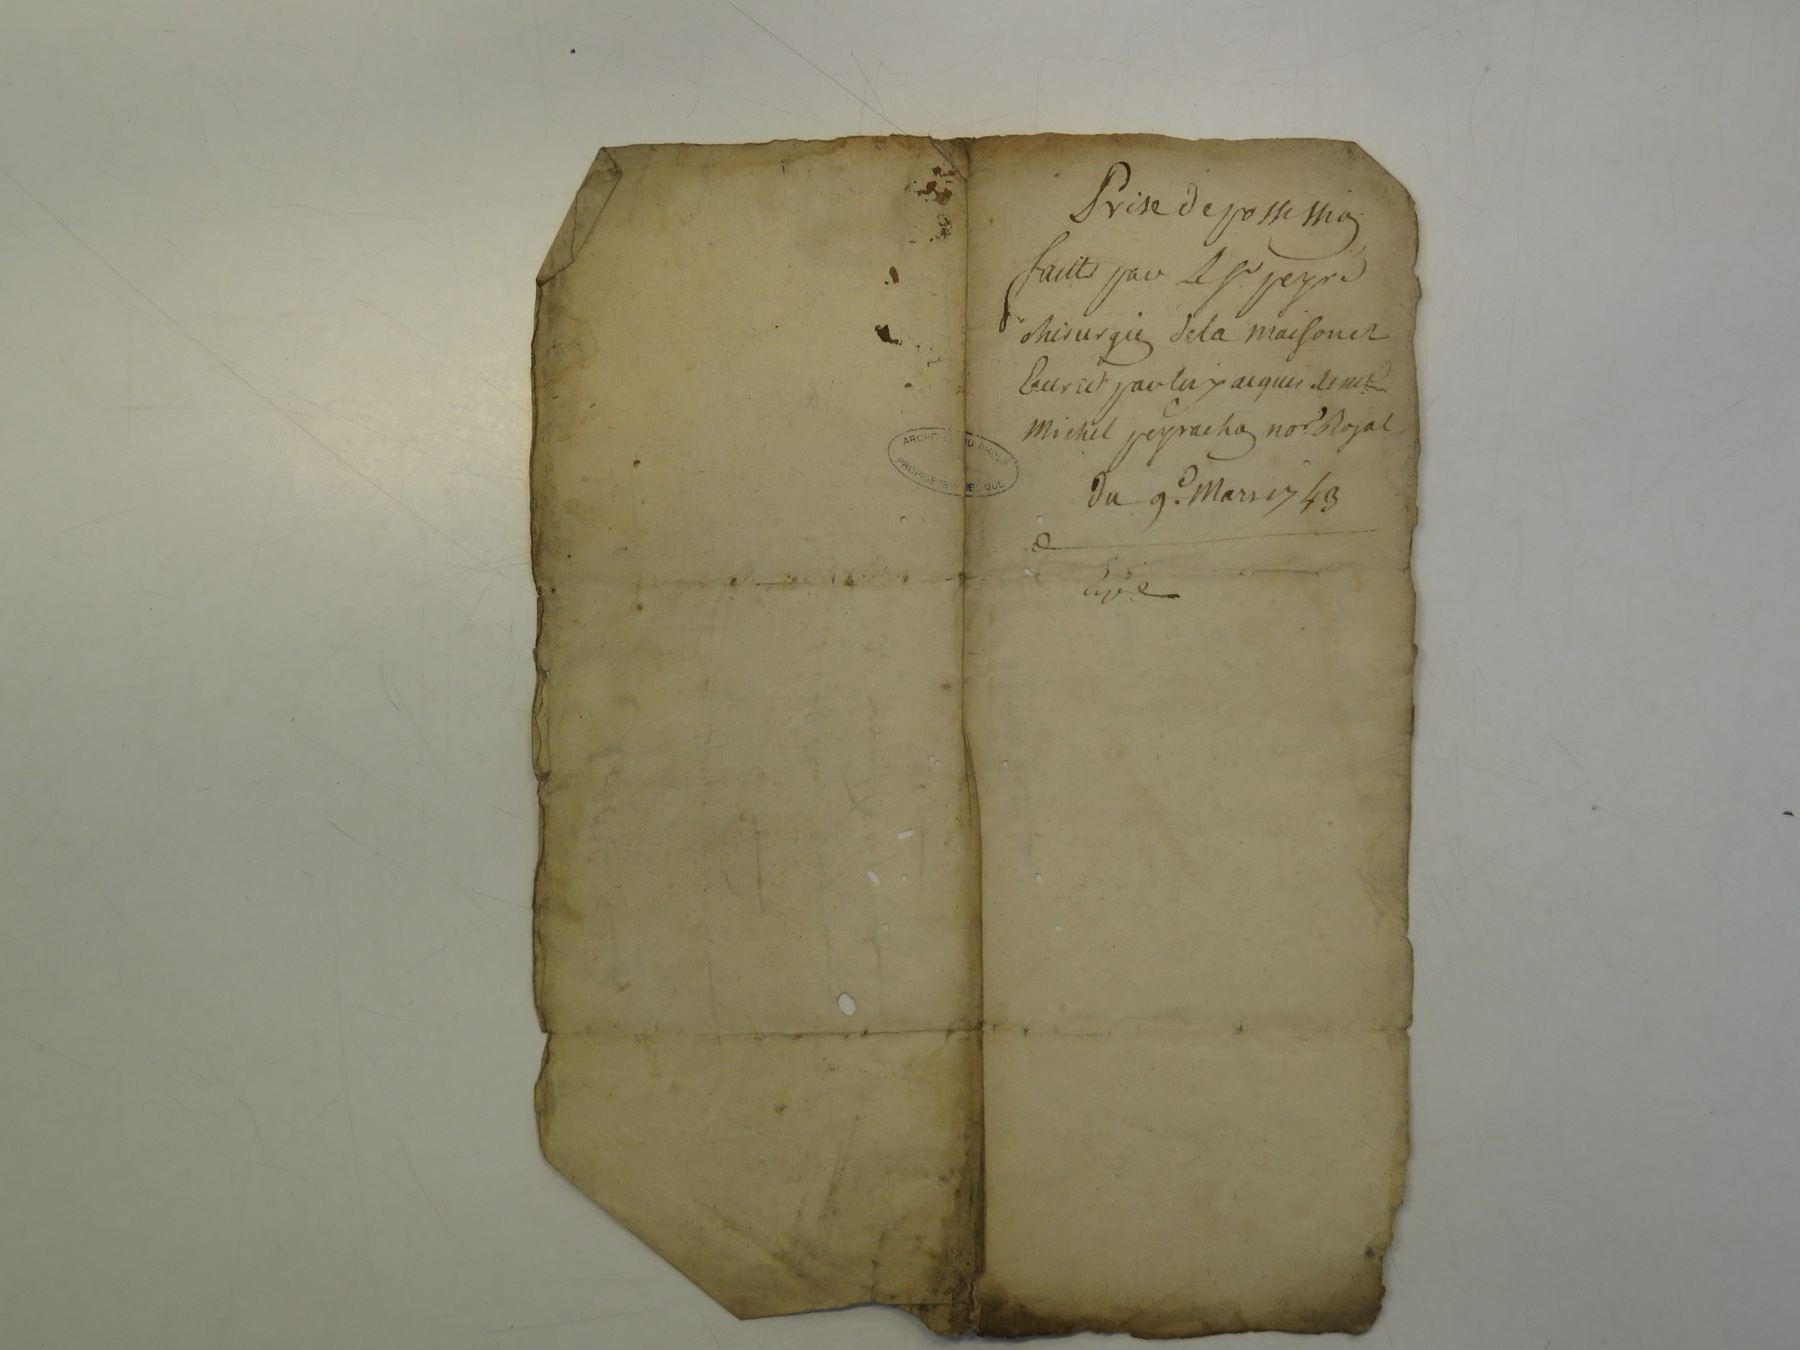 Prise de possession
faitte par le Sr peyre
chirurgien de la maison et
Ecurie par luy acquis de me
Michel peyrachon nore Royal
du 9e Mars 1743
ARCHI
PROPRIETE PUBLIQUE